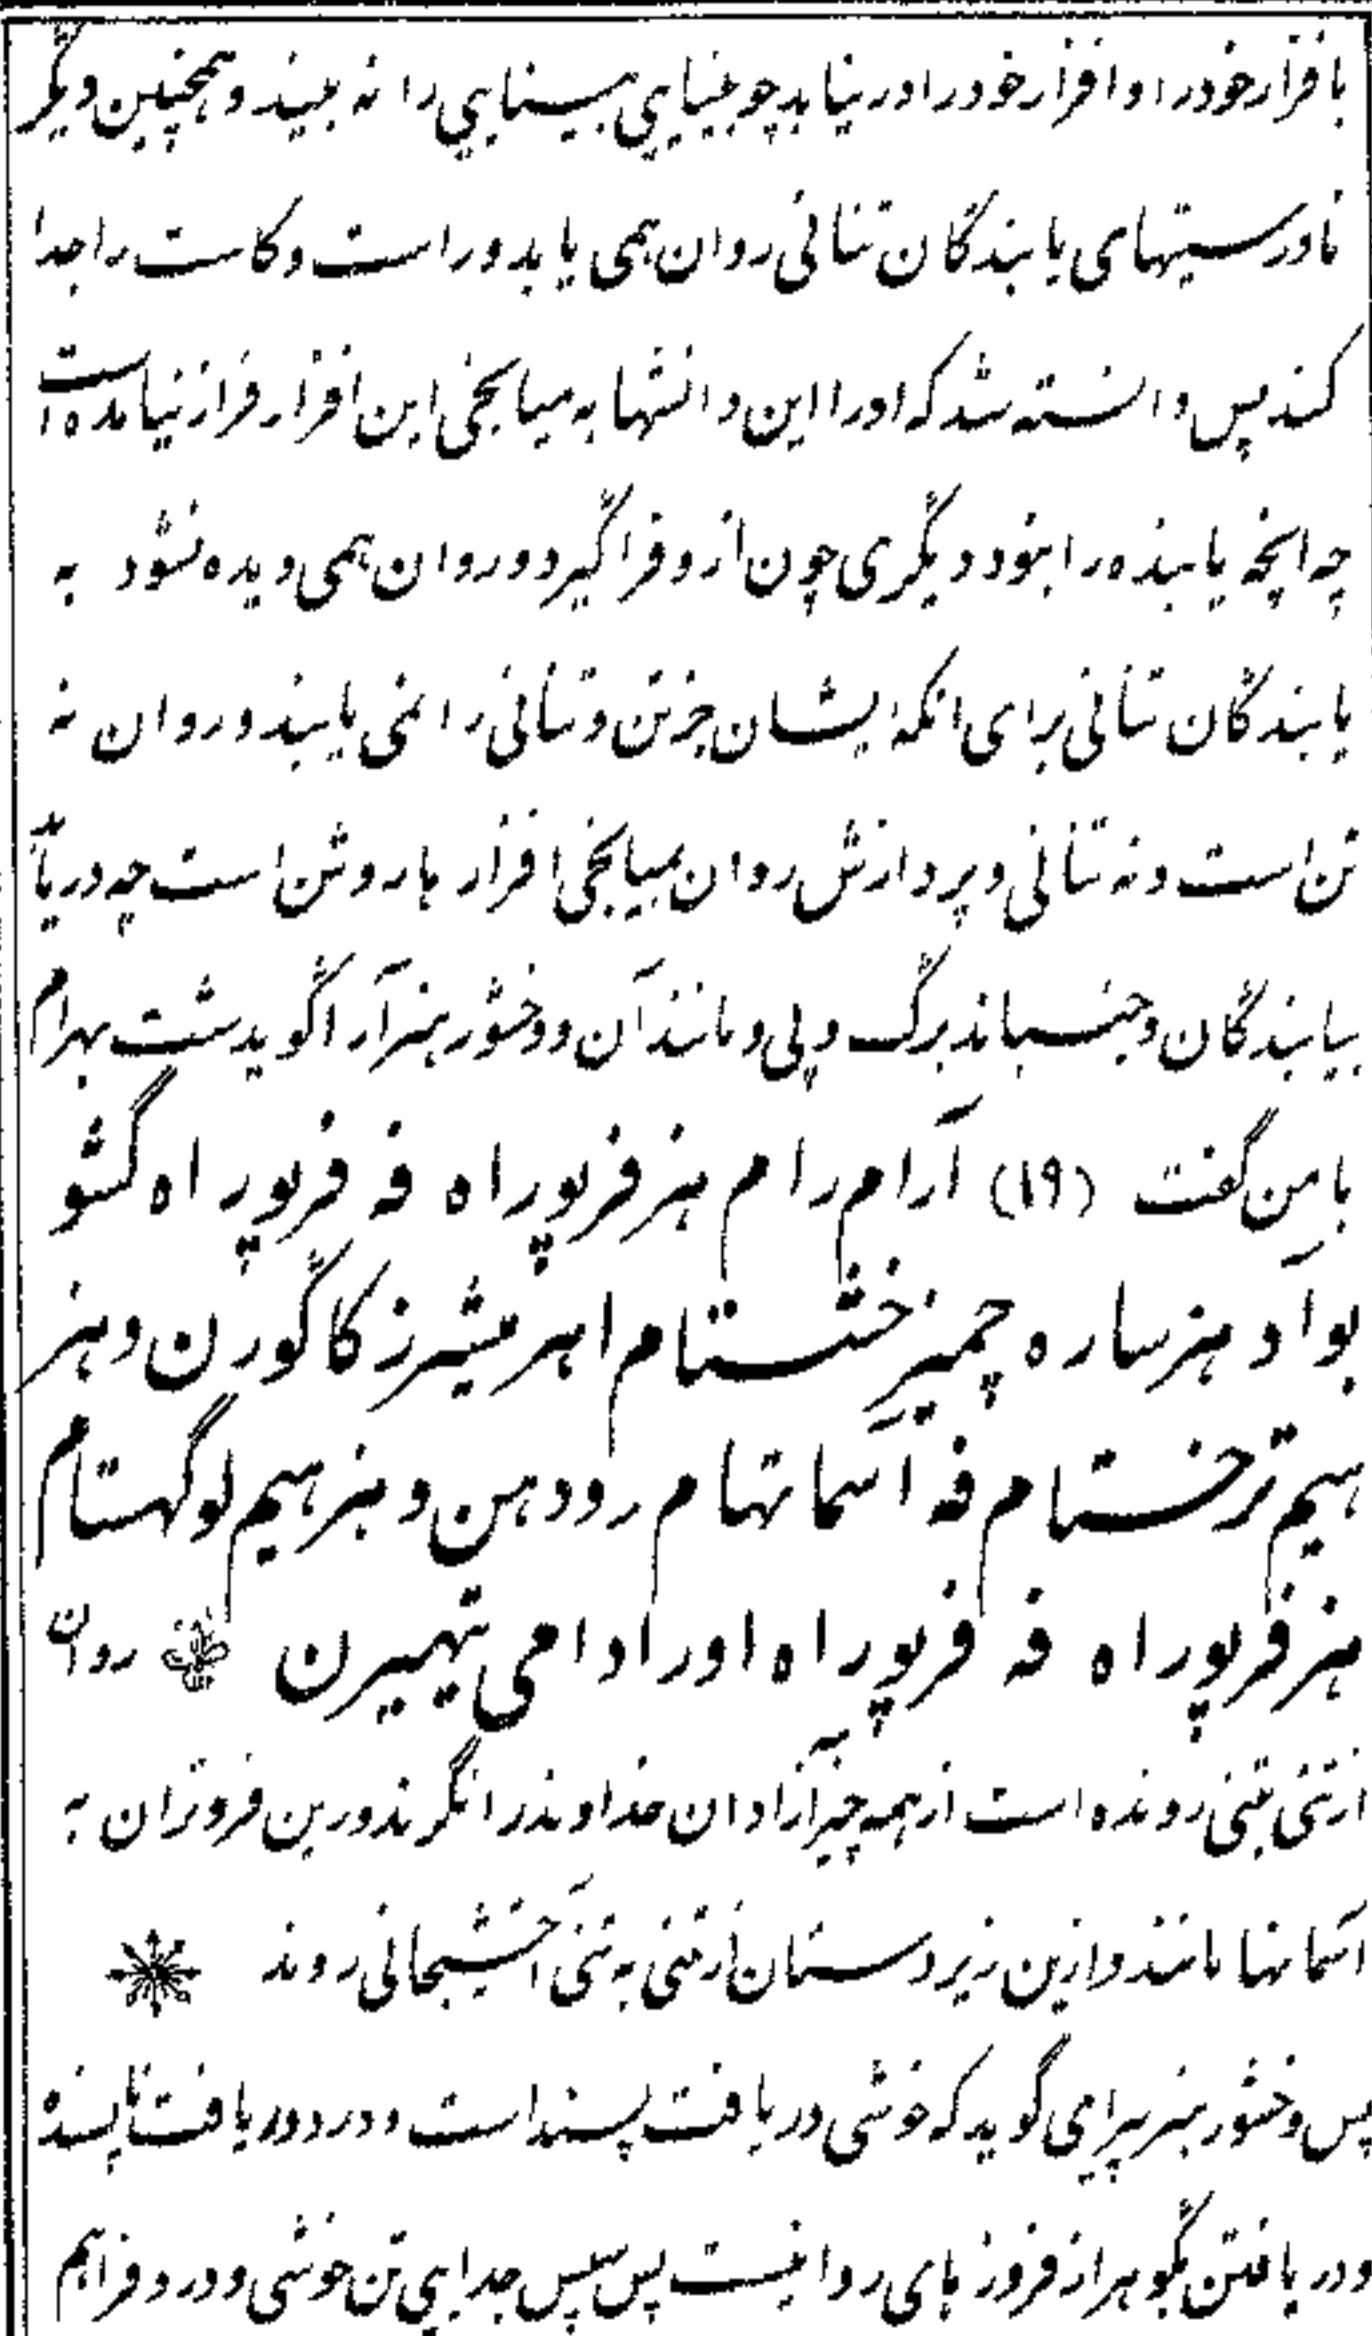 بافزار خود را و افزار خود را در نیابد چو بینایی بینایی را نه بیند و همچنین دیگر
نادرستیهای یابندگان تنانی روان همی یابد و راست و کاست را جدا
کند پس دانسته شد که او را این دانشها به میانجی این افزار فراز نیامده است
چه انچه یابنده را نبود دیگری چون از و فرا گیرد و روان همی دیده نشود به
یابندگان تنانی برای انکه ایشان جز تن و تنانی را نمی یابند و روان نه
تن است و نه تنانی و پردازش روان بمیانجی افزار ها روشن است چه دریابد
بیابندگان و جنباند برگ و پی و مانند آن و وخشور هنرآرا گوید شت بهرام
با من گفت (۱۹) آرام رام هنر فرپوراه فه فرپوراه گشو
بواد هنر ساره چمیز خشتام اهر میشرز کاگورن و هنر
هیم ترخستام فه آسمانهام رودهن و هنر هیم لوگهستام
هنر فرپوراه فه فرپوراه اورادامی تهمیرن روان
از تنی بتنی رونده است از همه چیز آزادان خداوند را نگرند و برین فروزان به
آسمانها مانند و ازین زیردستان از تنی به تنی آخشیجانی روند
پس وخشور هنر پیرای گوید که خوشی دریافت پسند است و درد دریافت ناپسند
و دریافتن گوهر از فروزهای روانیست پس سپس جدایی تن خوشی و درد فراهم